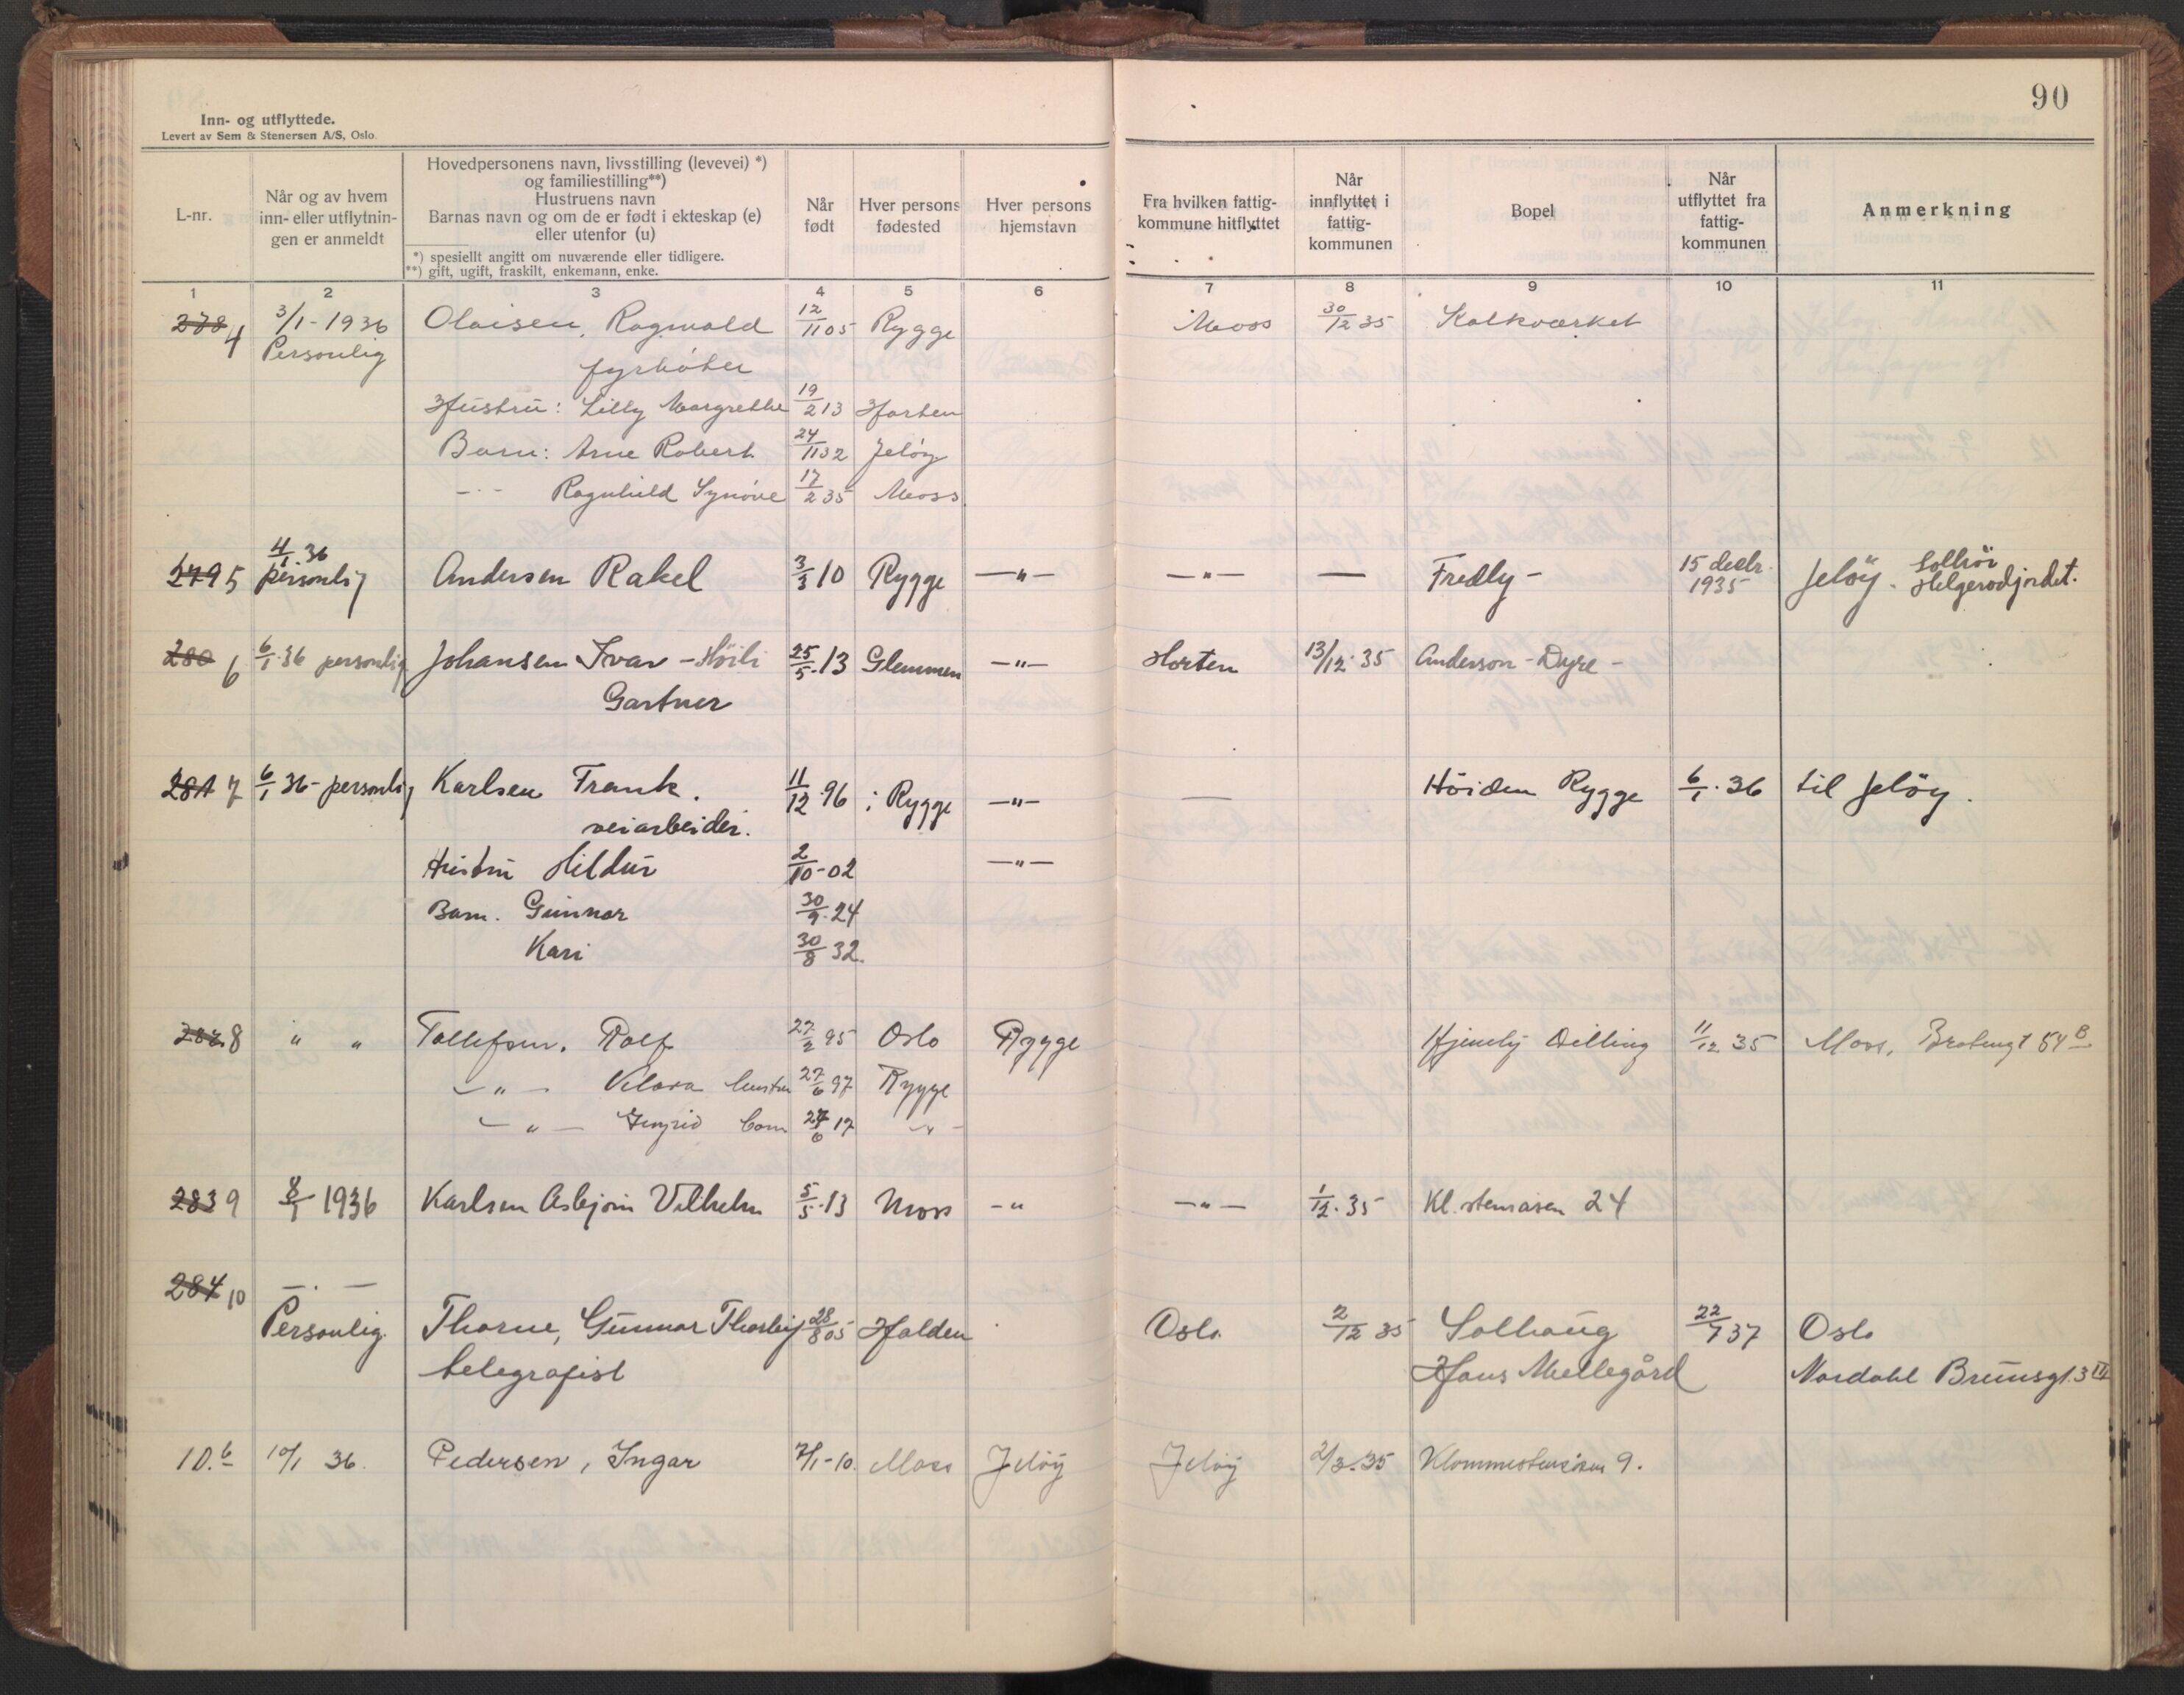 90
Inn- og utflyttede.
Levert av Sem & Stenersen A/S, Oslo.
L-nr.
Når og av hvem inn- eller utflytnin- gen er anmeldt
Hovedpersonens navn, livsstilling (levevei) *)
og familiestilling**)
Hustruens navn
Barnas navn og om de er født i ekteskap (e)
eller utenfor (u)
*) spesiellt angitt om nuværende eller tidligere.
**) gift, ugift, fraskilt, enkemann, enke.
Når født
Hver persons fødested
Hver persons hjemstavn
Fra hvilken fattig- kommune hitflyttet
Når innflyttet i fattig- kommunen
Bopel
Når utflyttet fra fattig- kommunen
Anmerkning
1 2 3 4 5 6 7 8 9 10 11
278 4 3/1-1936 Olaisen, Ragnvald 12/11 05 Rygge Moss 30/12 35 Kalkværket
Personlig
fyrbøter
Hustru: Lilly Margrethe 19/2 13 Horten
Barn: Arne Robert 24/11 32 Jeløy
-"- Ragnhild Synøve 17/2 35 Moss
279 5 4/1.36 personlig Andersen Rakel 3/3 10 Rygge —"— —"— — Fredly - 15 decbr. 1935 Jeløy - Solbrör Helgerødjordet.
280 6 6/1.36 personlig Johansen Ivar - Høili 25/5.13 Glemmen —"— Horten 13/12.35 Anderson - Dyre -
Gartner
281 7 6/1 36 - personlig Karlsen Frank. 11/12.96 i Rygge —"— — Höiden Rygge 6/1.36 til Jeløy.
veiarbeider.
Hustru Hildur 2/10-02 —"—
Barn. Gunnar 30/9.24
Kari 30/8 32.
282 8 " " Tollefsen, Rolf 27/2 95 Oslo Rygge Hjemly Dilling 11/12 35 Moss, Bratengt 54 B
—"— hustru 27/6 97 Rygge
—"— Ingrid barn 27/6 17 —"—
283 9 8/1 1936 Karlsen Asbjörn Vilhelm 5/5.13 Moss -" —"— 1/12.35 Kl. stensåsen 24
284 10 —.—
Personlig. Thorne, Gunnar Thorleif 28/8 05 Halden Oslo 2/12 35 Solhaug 22/7 37 Oslo
telegrafist Hans Mellegård Nordahl Brunsgt. 3 III
10.b 10/1 36. Pedersen, Ingar 7/1-10. Moss Jeløy Jeløy 2/3.35 Klommestensåsen 9.